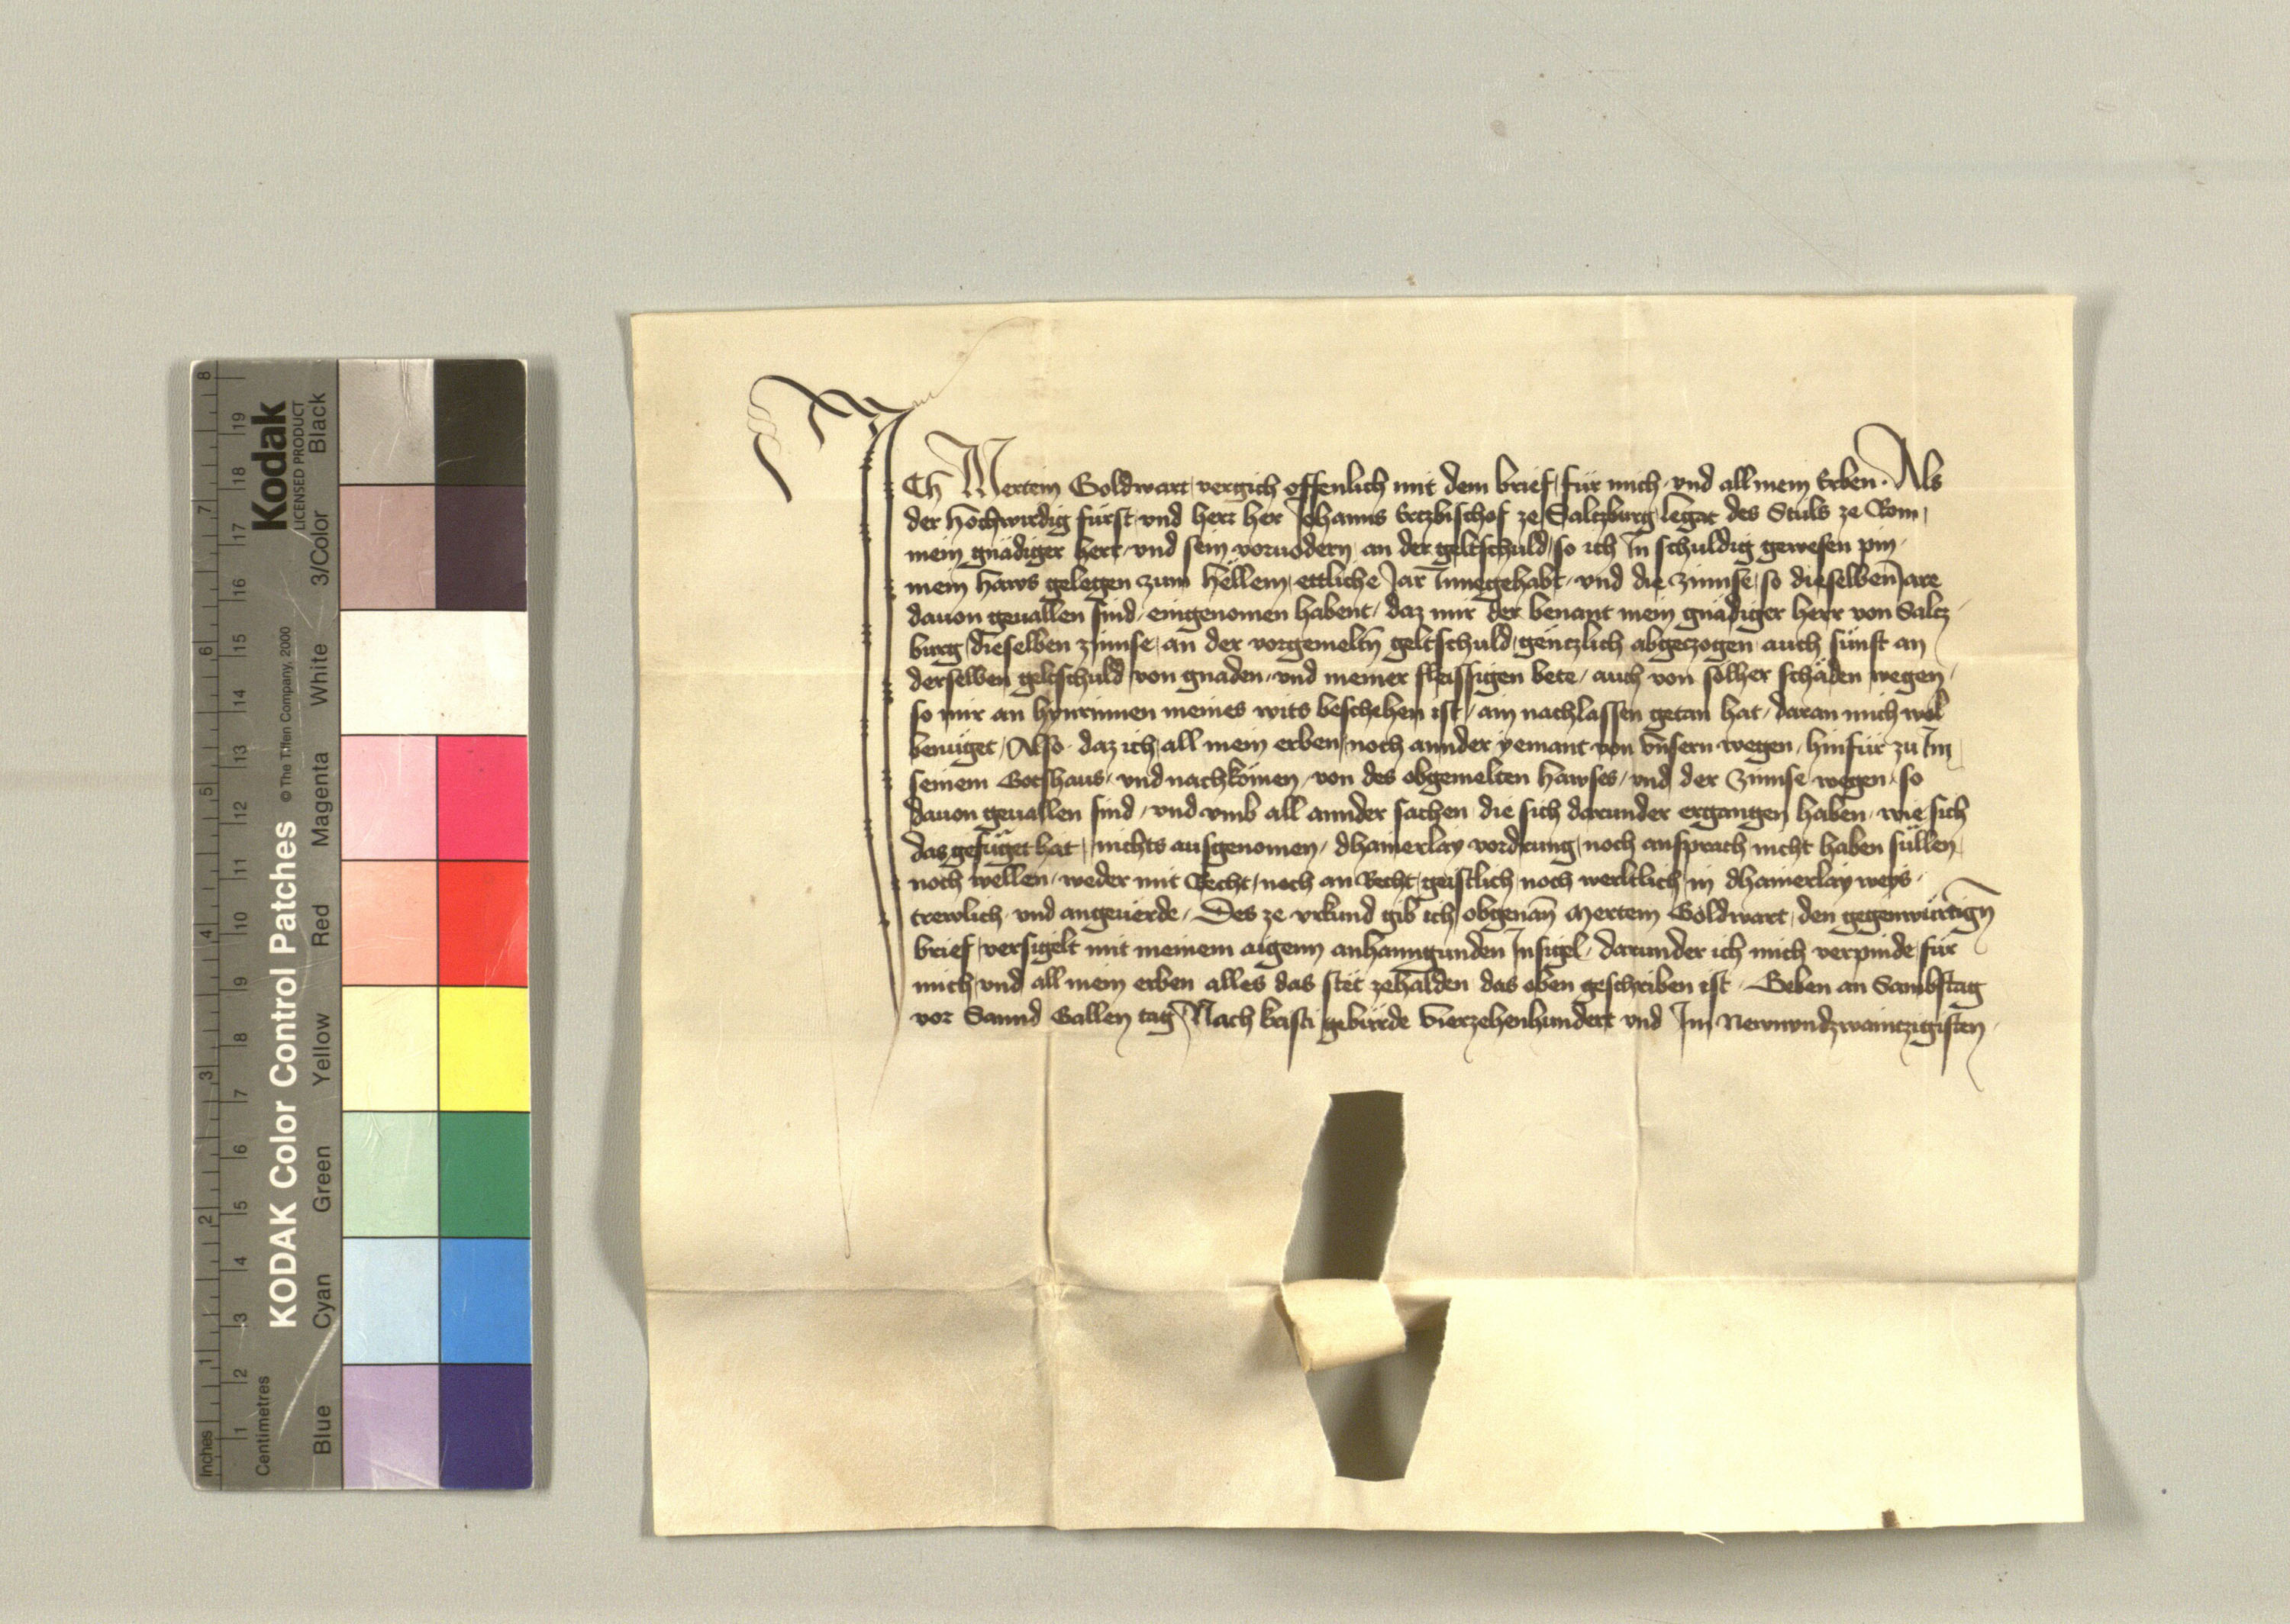 Ich Mertein Goldwart, vergich offenlich mit dem brief, für mich, vnd all mein Erben. Als
der hochwirdig fürst, vnd herr her Johanns Ertzbischof ze Saltzburg legat des Stuls ze Rom,
mein gnädiger herr, vnd sein voruodern, an der geltschuld, so ich In schuldig gewesen pin,
mein haws gelegen zum hellein, ettliche Jar Innegehabt, vnd die zinnse, so dieselben Jare
dauon geuallen sind, eingenomen habent, daz mir der benant mein gnädiger herr von Saltz
burg, dieselben zinnse, an der vorgemeltn geltschuld, gentzlich abgeczogen, auch sünst an
derselben geltschuld, von gnaden, vnd meiner fleissigen bete, auch von sölher schäden wegen,
so mir an hynrinnen meines wits beschehen ist, ain nachlassen getan hat, daran mich wol
benüget, Also daz ich, all mein erben, noch annder yemant von vnsern wegen, hinfür zu Im
seinem Gotshaus, vnd nachkömen, von des obgemelten hawses, vnd der zinnse wegen, so
dauon geuallen sind, vnd vmb all annder sachen, die sich darunder ergangen haben, wie sich
das gefüget hat, nichts ausgenomen, dhainerlay vordrung, noch ansprach nicht haben süllen,
noch wellen, weder mit Recht, noch an Recht, geistlich, noch werltlich, in dhainerlay weys,
trewlich, vnd angeuerde, Des ze vrkund gib ich, obgenan̄ Mertein Goldwart, den gegenwürtign̄
brief, versigelt mit meinem aigenn anhanngunden Insigel, darunder ich mich verpinde, für
mich, vnd all mein erben alles das stët zehalden, das oben geschriben ist, Geben an Sambstag
vor Sannd Gallen tag, Nach kristi gebürde Vierzehenhundert vnd Im Newnvndzwaintzigisten,
KODAK Color Control Patches
© The Tiffen Company, 2000
Kodak
LICENSED PRODUCT
Inches 1 2 3 4 5 6 7 8
Centimetres 1 2 3 4 5 6 7 8 9 10 11 12 13 14 15 16 17 18 19
Blue Cyan Green Yellow Red Magenta White 3/Color Black